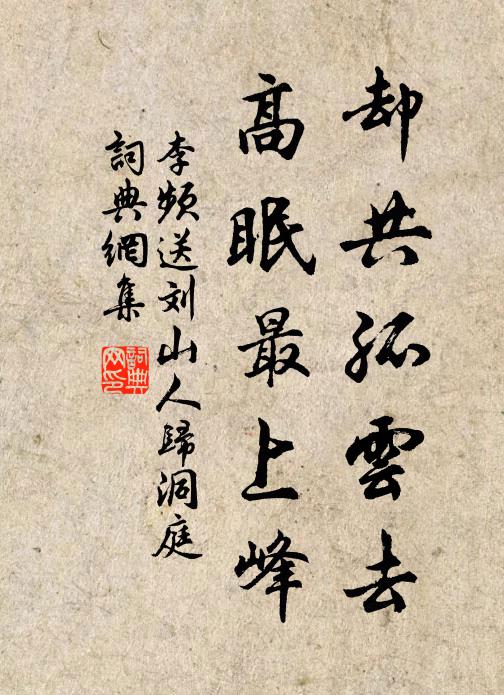 却共孤雲去
高眠最上峰
李频送刘山人歸洞庭
詞典網集
詞典
网印